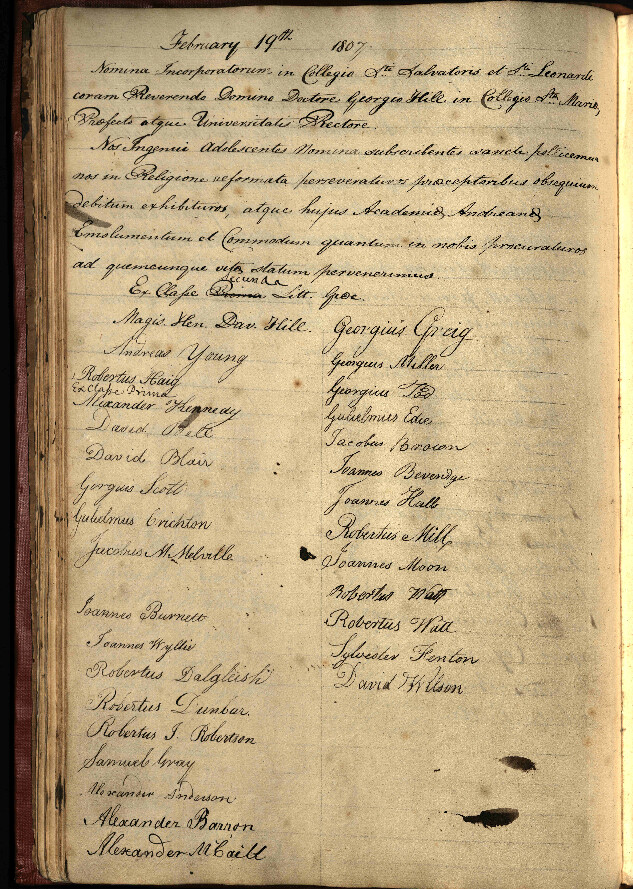 February 19th 1807
Nomina Incorporatorum in Collegio Sti Salvatoris et Sti Leonardi
coram Reverendo Domino Doctore Georgio Hill in Collegio Stae Mariae,
Præfecto atque Universitatis Rectore.
Nos Ingenui Adolescentes Nomina subscribentes sancte pollicemur
nos in Religione reformata perseveraturos præceptoribus obsequium
debitum exhibituros, atque hujus Academiæ Andreanæ
Emolumentum et Commodum quantum in nobis procuraturos
ad quemcunque vitæ statum pervenerimus.
secunda
Ex Classe Prima Litt. Græc.
Magis. Hen. Dav. Hill.
Andreas Young
Robertus Haig
Ex Classe Prima
Alexander Kennedy
David Bell
David Blair
Gorgius Scott
Gulielmus Crichton
Jacobus M. Melville
Joannes Burnett
Joannes Wyllie
Robertus Dalgleish
Robertus Dunbar.
Robertus J. Robertson
Samuel Gray
Alexander Anderson
Alexander Barron
Alexander McCaill
Georgius Greig
Georgius Miller
Georgius Tod
Gulielmus Edie
Jacobus Brown
Joannes Beveridge
Joannes Halls
Robertus Mill
Joannes Moon
Robertus Watt
Robertus Watt
Sylvester Fenton
David Wilson